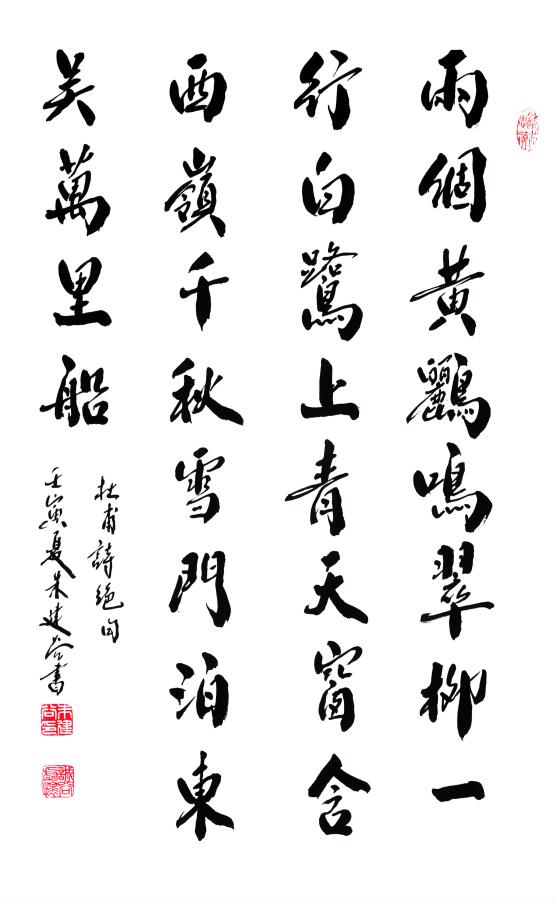 兩個黃鸝鳴翠柳一
行白鷺上青天窗含
西嶺千秋雪門泊東
吳萬里船
杜甫詩絕句
壬寅夏朱建谷書